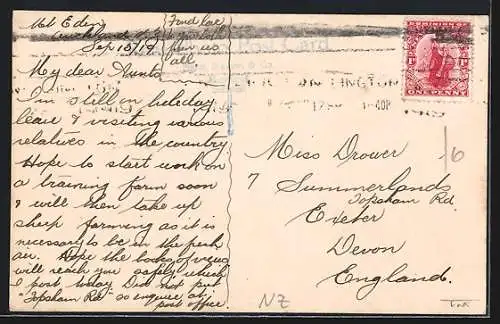 Mt Eden
Auckland N.Z
Sep 15/19
Fond love
to you both
from us
all
My dear Aunts
I'm still on holiday
leave & visiting various
relatives in the country.
Hope to start work on
a training farm soon
& will then take up
sheep farming as it is
necessary to be in the fresh
air. Hope the books of views
will reach you safely which
I post today Did not put
"Topsham Rd" so enquire at
post office.
Post Card
ONE PENNY
Miss Drower
7 Summerlands
Topsham Rd
Exeter
Devon
England.
1/6
NZ